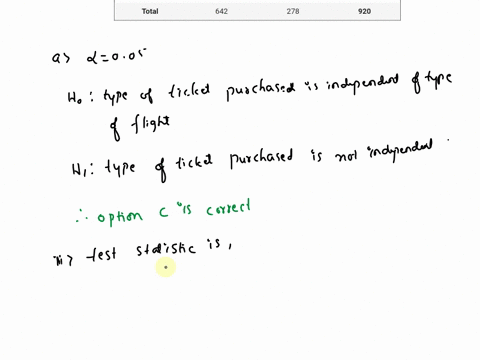 Total 642 278 920
a> α=0.05
H₀ : type of ticket purchased is independent of type
of flight
H₁ : type of ticket purchased is not independent .
∴ option C is correct
ii> test statistic is ,